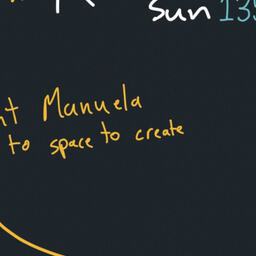 Sun 13
nt Manuela
to space to create